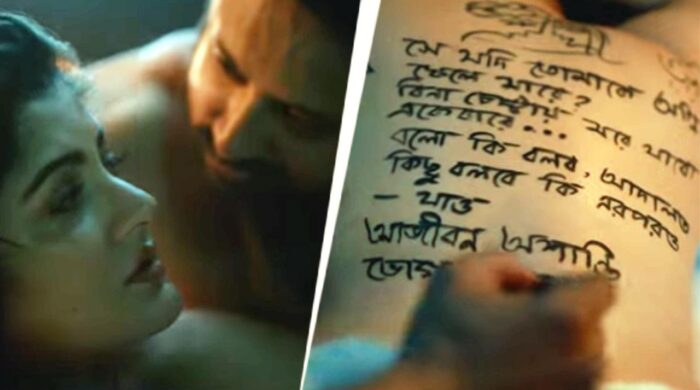 সে যদি তোমাকে অগ্নি
ফেলে মারে?
বিনা চেষ্টায় মরে যাবো
একেবারে...
বলো কি বলব, আদালত
কিছু বলবে কি এরপরও
– যাও
আজীবন অশান্তি
ভোগ